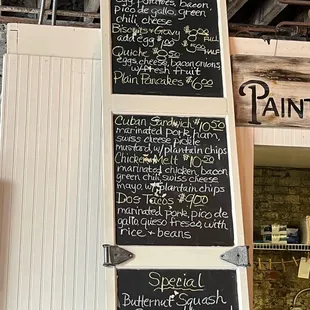 egg, potatoes, bacon,
pico de gallo, green
chili, cheese
Biscuits + Gravy $8.00 Full
add egg $1.00 $5.00 half
Quiche $9.00
eggs, cheese, bacon, onions
w/ fresh fruit
Plain Pancakes $6.00
Cuban Sandwich $10.50
marinated pork, ham,
swiss cheese pickle
mustard, w/ plantain chips
Chicken Melt $10.50
marinated chicken, bacon
green chili, swiss cheese
mayo, w/ plantain chips
Dos Tacos $9.00
marinated pork, pico de
gallo, queso fresco, with
rice + beans
Special
Butternut Squash
PAINT